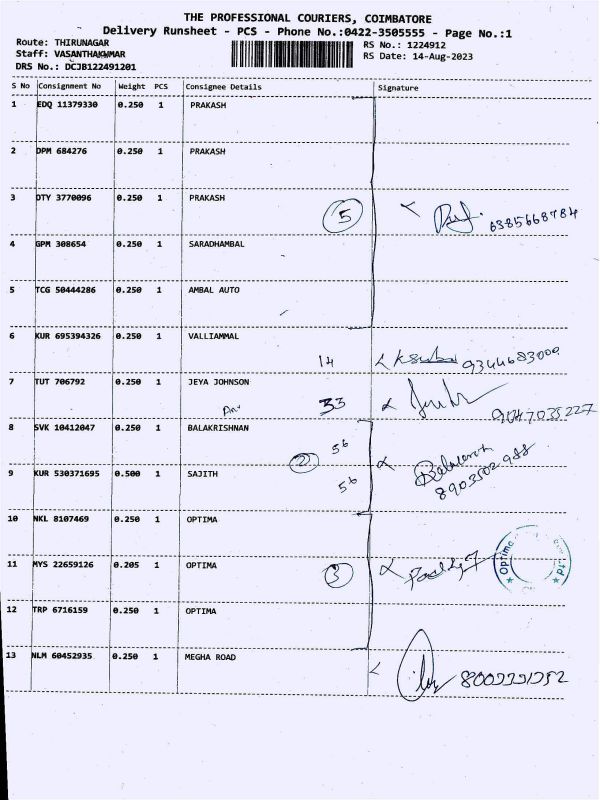 THE PROFESSIONAL COURIERS, COIMBATORE
Delivery Runsheet - PCS - Phone No.:0422-3505555 - Page No.:1
Route: THIRUNAGAR
RS No.: 1224912
Staff: VASANTHAKUMAR
RS Date: 14-Aug-2023
DRS No.: DCJB122491201
S No Consignment No Weight PCS Consignee Details Signature
1 EDQ 11379330 0.250 1 PRAKASH
2 DPM 684276 0.250 1 PRAKASH
3 DTY 3770096 0.250 1 PRAKASH
5 6385668784
4 GPM 308654 0.250 1 SARADHAMBAL
5 TCG 50444286 0.250 1 AMBAL AUTO
6 KUR 695394326 0.250 1 VALLIAMMAL
14 9344683009
7 TUT 706792 0.250 1 JEYA JOHNSON
33 9047035227
8 SVK 10412047 0.250 1 BALAKRISHNAN
56
2
9 KUR 530371695 0.500 1 SAJITH
56 8903502988
10 NKL 8107469 0.250 1 OPTIMA
11 MYS 22659126 0.205 1 OPTIMA
3 Optima
12 TRP 6716159 0.250 1 OPTIMA
13 NLM 60452935 0.250 1 MEGHA ROAD